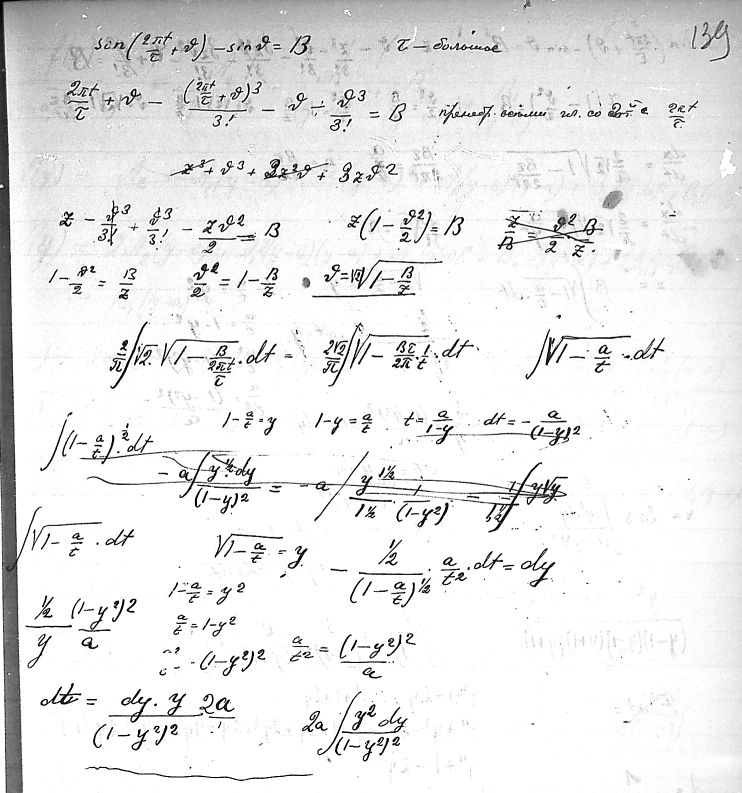 139
sin(2πt/τ + ϑ) – sin ϑ = B τ – большое
2πt/τ + ϑ – (2πt/τ + ϑ)³/3! – ϑ + ϑ³/3! = B пренебр. всеми чл. со 2πt/τ
z³ + ϑ³ + 3z²ϑ + 3zϑ²
z – ϑ³/3! + ϑ³/3! – zϑ²/2 = B z(1 – ϑ²/2) = B z/B = ϑ²/2 B/z
1 – ϑ²/2 = B/z ϑ²/2 = 1 – B/z ϑ = √2 √(1 – B/z)
2/π ∫ √2 √(1 – B/(2πt/τ)) · dt = 2√2/π ∫ √(1 – Bτ/2π · 1/t) · dt ∫ √(1 – a/t) · dt
1 – a/t = y 1 – y = a/t t = a/(1–y) dt = – a/(1–y)²
∫ (1 – a/t)^½ dt
– a ∫ y^½ dy/(1–y)² = – a ∫ y^1½/1½ · 1/(1–y²) – 1/1½ ∫ y√y
∫ √(1 – a/t) · dt √(1 – a/t) = y – ½/(1 – a/t)^½ · a/t² · dt = dy
1 – a/t = y²
½/y (1–y²)²/a
a/t = 1 – y²
(1–y²)² a/t² = (1–y²)²/a
dt = dy · y 2a/(1–y²)² 2a ∫ y² dy/(1–y²)²